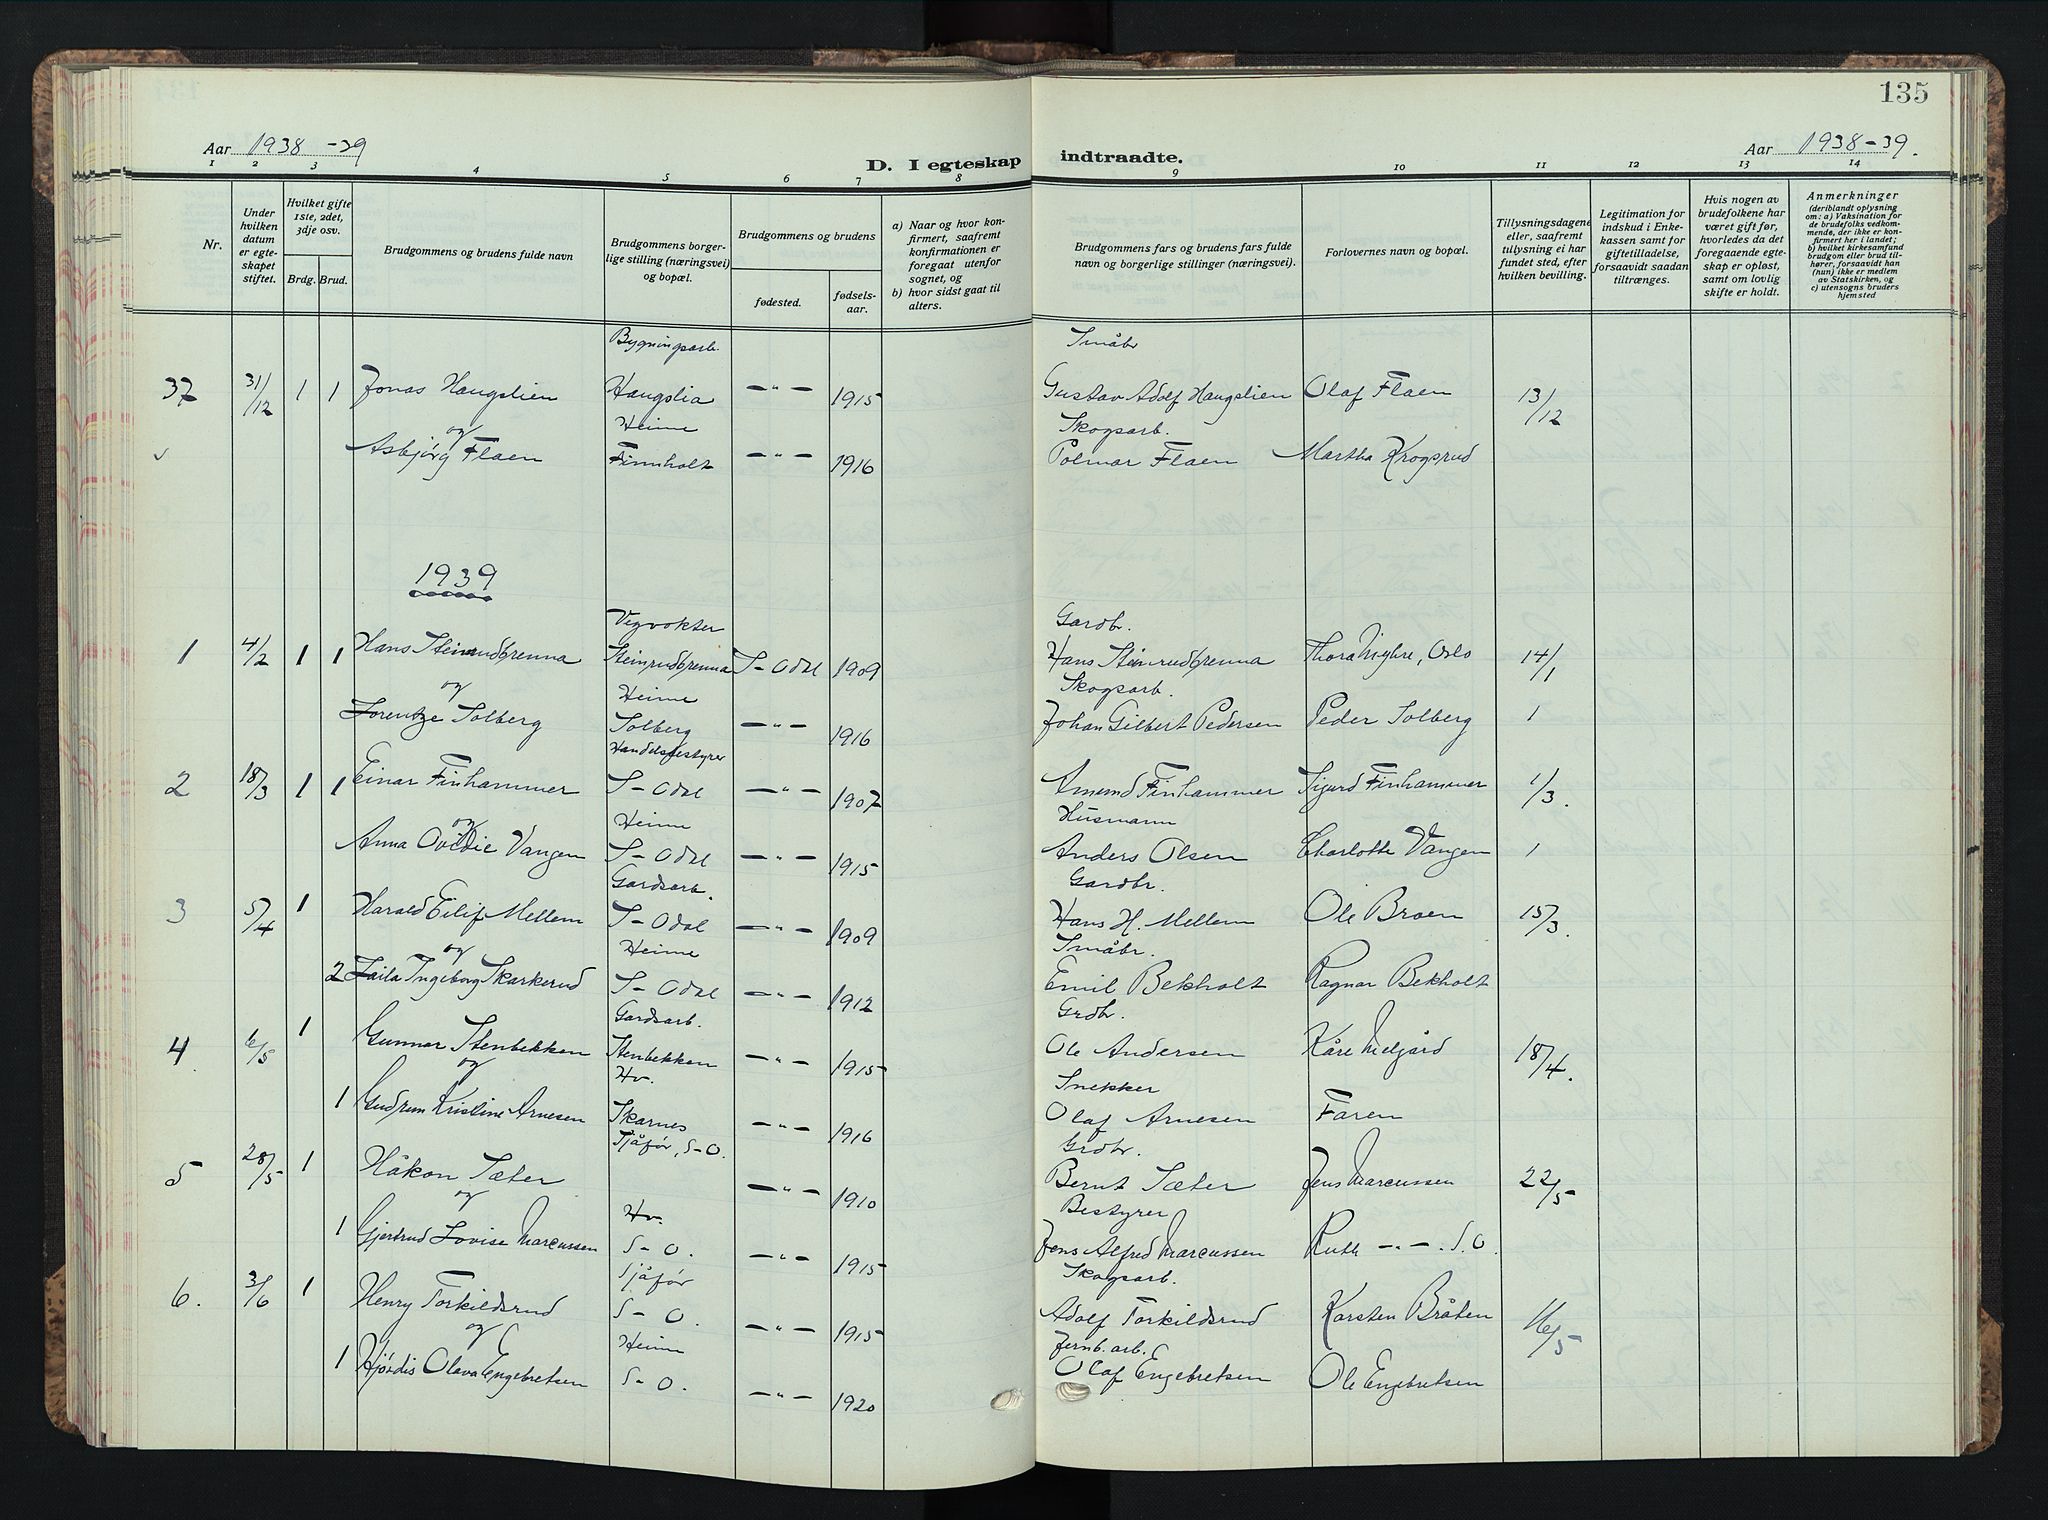 135
Aar 1938-39
D. I egteskap indtraadte.
Aar 1938-39.
1 2 3 4 5 6 7 8 9 10 11 12 13 14
Nr.
Under hvilken datum er egteskapet stiftet.
Hvilket gifte 1ste, 2det, 3dje osv.
Brdg. Brud.
Brudgommens og brudens fulde navn
Brudgommens borgerlige stilling (næringsvei) og bopæl.
Brudgommens og brudens
fødested.
fødselsaar.
a) Naar og hvor konfirmert, saafremt konfirmationen er foregaat utenfor sognet, og
b) hvor sidst gaat til alters.
Brudgommens fars og brudens fars fulde navn og borgerlige stillinger (næringsvei).
Forlovernes navn og bopæl.
Tillysningsdagene eller, saafremt tillysning ei har fundet sted, efter hvilken bevilling.
Legitimation for indskud i Enkekassen samt for giftetilladelse, forsaavidt saadan tiltrænges.
Hvis nogen av brudefolkene har været gift før, hvorledes da det foregaaende egteskap er opløst, samt om lovlig skifte er holdt.
Anmerkninger
(deriblandt oplysning om: a) Vaksination for de brudefolks vedkommende, der ikke er konfirmert her i landet; b) hvilket kirkesamfund brudgom eller brud tilhører, forsaavidt han (hun) ikke er medlem av Statskirken, og c) utensogns bruders hjemsted
Bygningsarb. Småbr
37 31/12 1 1 Jonas Haugslien Haugslia —"— 1915 Gustav Adolf Haugslien Olaf Flaen 13/12
og Heime Skogsarb.
Asbjørg Flaen Finnholt —"— 1916 Polmar Flaen Martha Krogsrud
1939
Vegvokter Gardbr.
1 4/2 1 1 Hans Steinrudbrenna Steinrudbrenna S-Odal 1909 Hans Steinrudbrenna Thora Myhre, Oslo 14/1
og Heime Skogsarb.
Lorentze Solberg Solberg —"— 1916 Johan Gilbert Pedersen Peder Solberg 1
Handelsbestyrer
2 18/3 1 1 Einar Finhammer S-Odal —"— 1907 Amund Finhammer Sigurd Finhammer 1/3.
og Heime Husmann
Anna Ovedie Vangen S-Odal —"— 1915 Anders Olsen Charlotte Vangen 1
Gardsarb. Gardbr.
3 5/4 1 Harald Eilif Mellem S-Odal —"— 1909 Hans H. Mellem Ole Broen 15/3.
og Heime Småbr.
2 Laila Ingeborg Skarkerud S-Odal —"— 1912 Emil Bekholt Ragnar Bekholt
Gardsarb. Grdbr.
4 6/5 1 Gunnar Stenbekken Stenbekken —"— 1915 Ole Andersen Kåre Melgård 18/4.
og Hv. Snekker
1 Gudrun Kristine Arnesen Skarnes —"— 1916 Olaf Arnesen Faren
Sjåfør, S-O. Grdbr.
5 28/5 1 Håkon Sæter —"— 1910 Bernt Sæter Jens Marcussen 22/5
og Hv. Bestyrer
1 Gjertrud Lovise Marcussen S-O. —"— 1915 Jens Alfred Marcussen Ruth —"— S.O.
Sjåfør Skogsarb.
6. 3/6 1 Henry Torkildsrud S-O. —"— 1915 Adolf Torkildsrud Karsten Bråten 16/5
og Heime Jernb.arb.
1 Hjørdis Olava Engebretsen S-O. —"— 1920 Olaf Engebretsen Ole Engebretsen